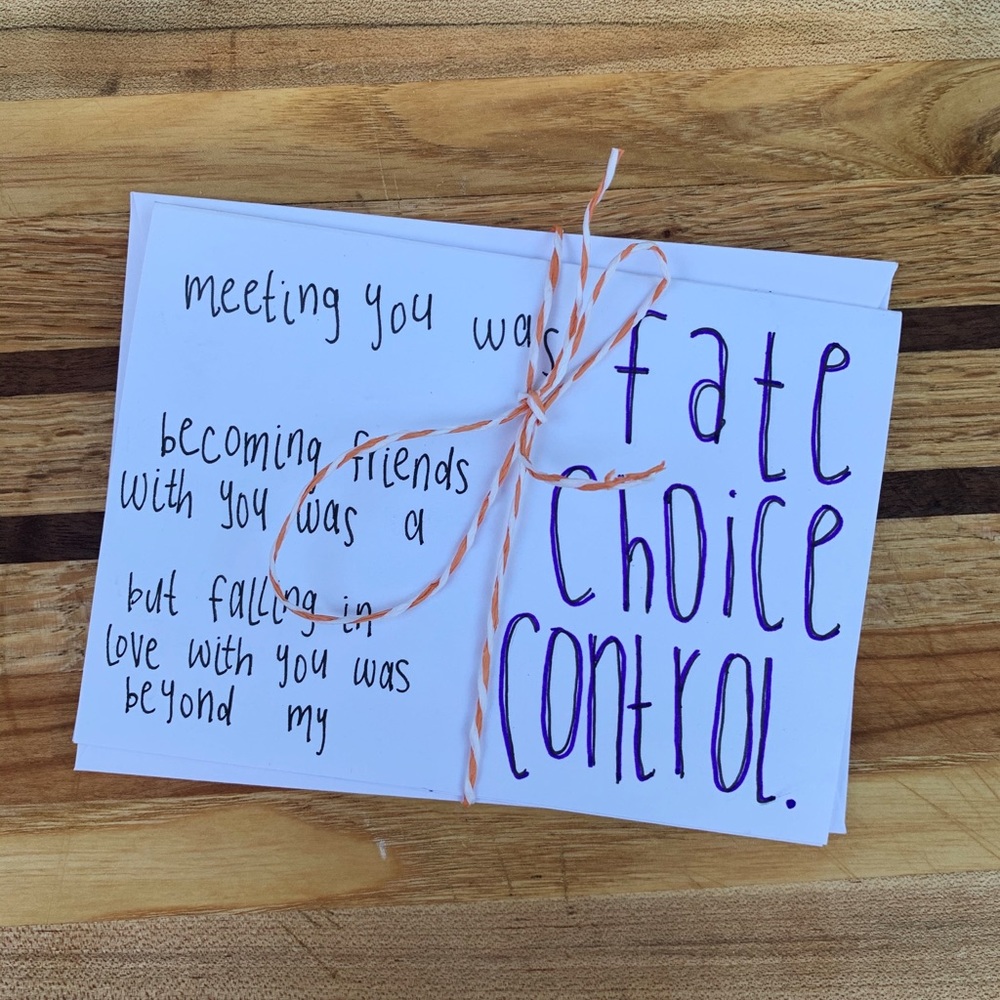 meeting you was fate
becoming friends
with you was a choice
but falling in
love with you was
beyond my control.